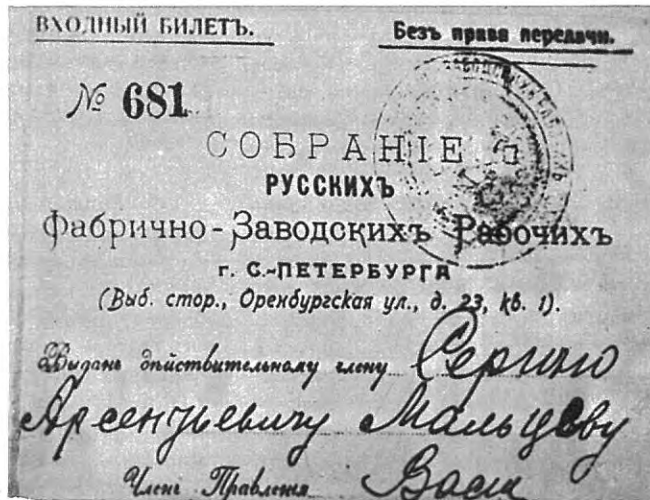 ВХОДНЫЙ БИЛЕТЪ.
Безъ права передачи.
№ 681
СОБРАНІЕ
РУССКИХЪ
Фабрично-Заводскихъ Рабочихъ
г. С.-ПЕТЕРБУРГА
(Выб. стор., Оренбургская ул., д. 23, кв. 1).
Выданъ дѣйствительному члену Сергѣю
Арсентьевичу Мальцеву
Членъ Правленія